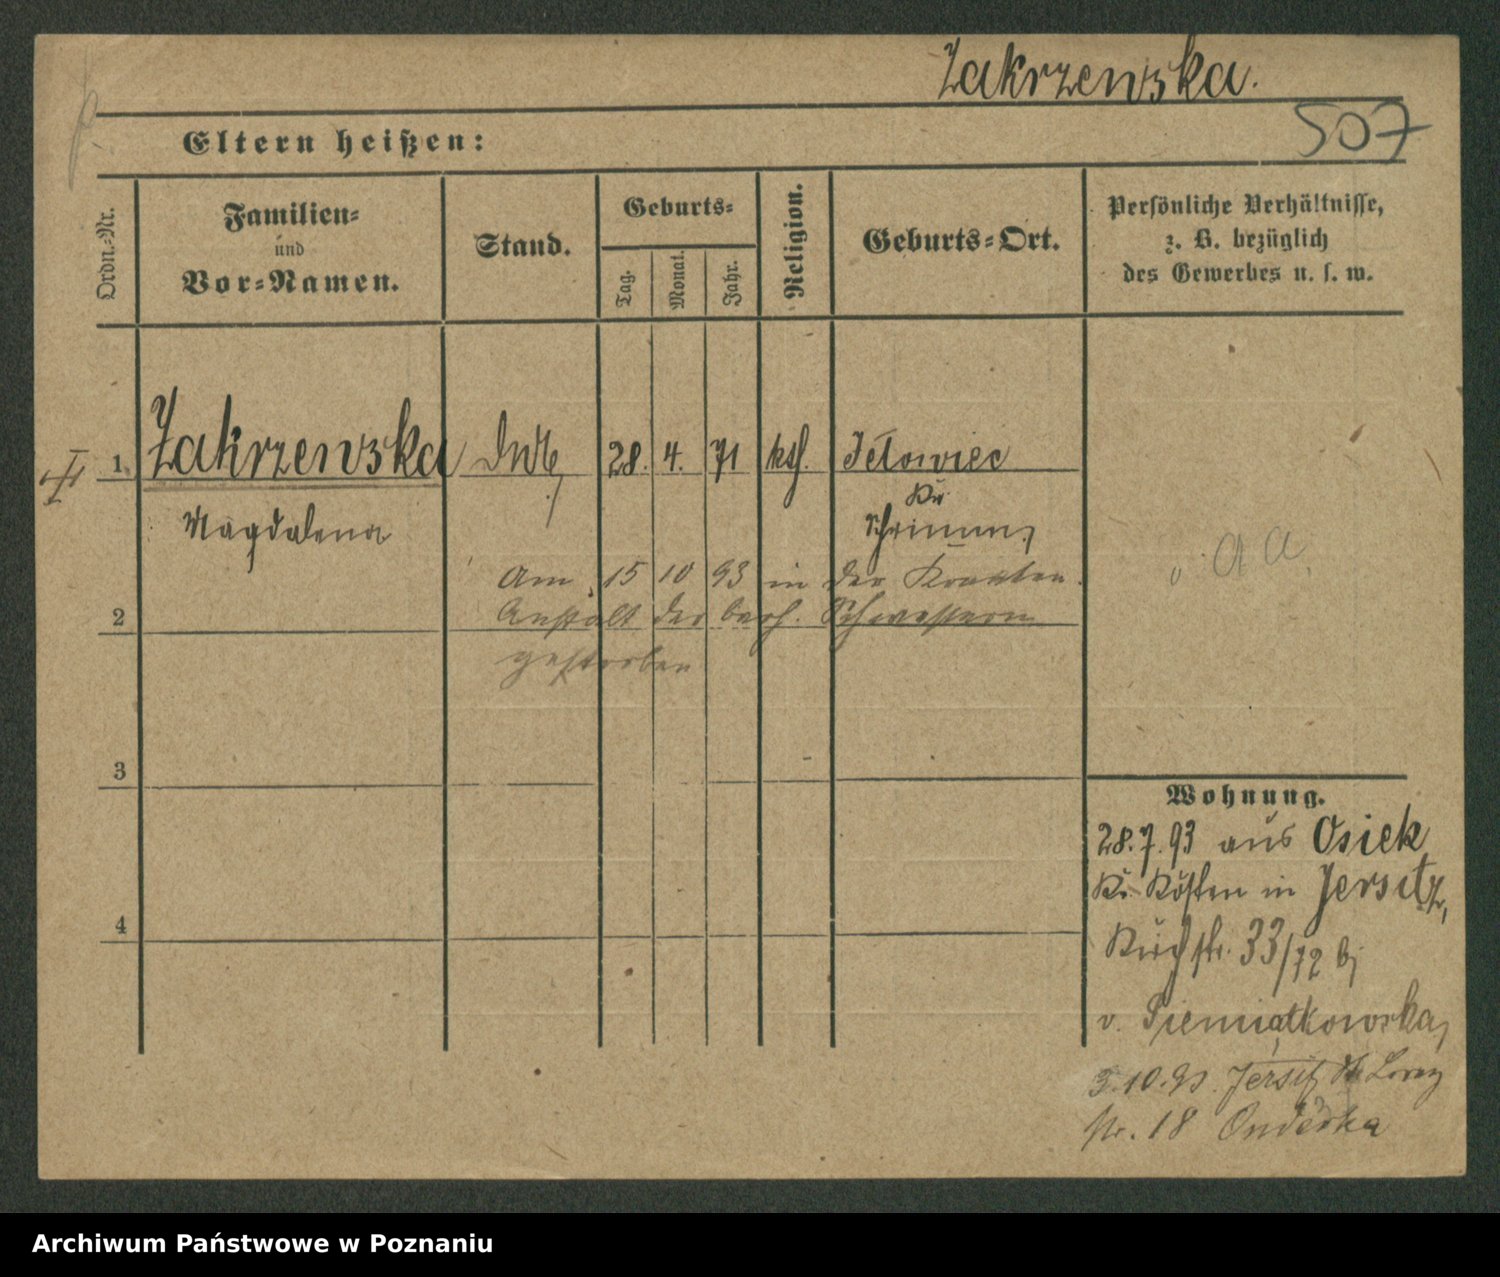 Zakrzewska.
507
Eltern heißen:
Ordn.-Nr.
Familien-
und
Vor-Namen.
Stand.
Geburts-
Tag.
Monat.
Jahr.
Religion.
Geburts-Ort.
Persönliche Verhältnisse,
z. B. bezüglich
des Gewerbes u. s. w.
1 Zakrzewska 28. 4. 71 kth. Jełowiec
Kr.
Magdalena Schrimm,
aa
Am 15 10 93 in der Kranken
2 Anstalt der barh. Schwestern
gestorben
3
4
Wohnung.
28.7.93 aus Osiek
Kr. Kosten in Jersitz,
Kirchstr. 33/72 bj
v. Siemiątkowska,
3.10.93. Jersitz
Nr. 18
Archiwum Państwowe w Poznaniu